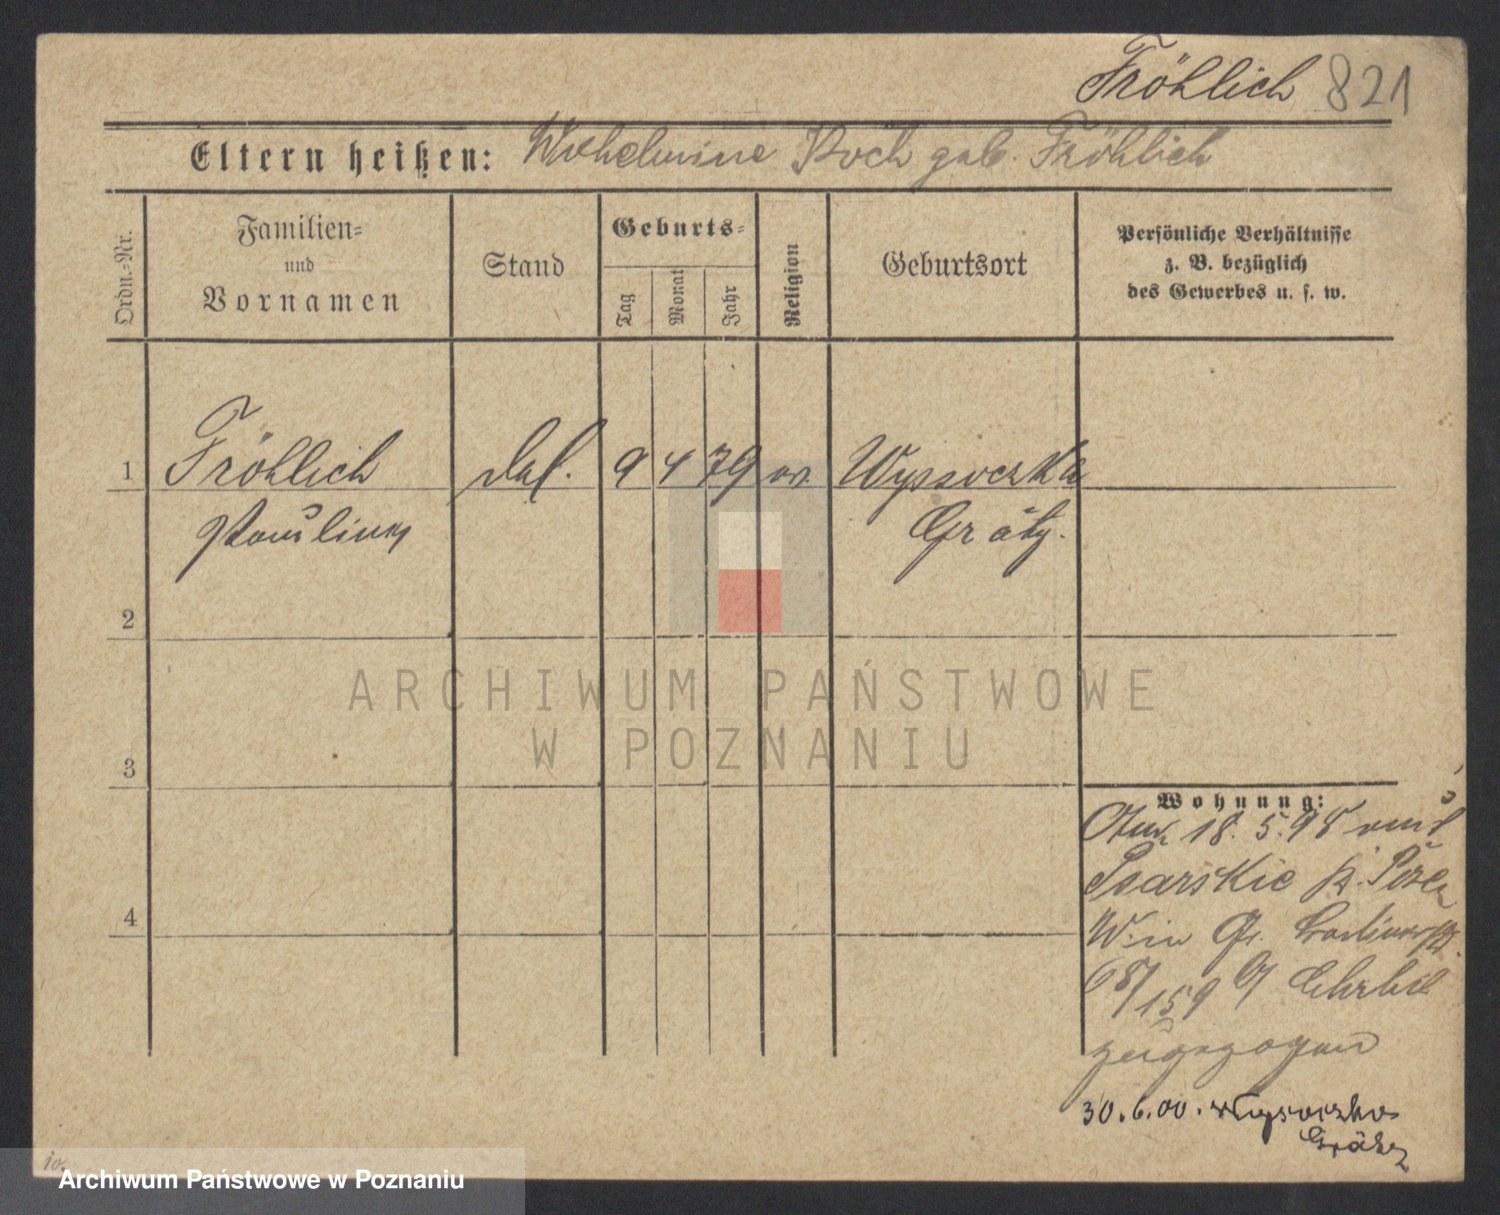 Fröhlich 821
Eltern heißen: Wilhelmine Koch geb. Fröhlich
Ordn.-Nr.
Familien-
und
Vornamen
Stand
Geburts-
Tag
Monat
Jahr
Religion
Geburtsort
Persönliche Verhältnisse
z. B. bezüglich
des Gewerbes u. s. w.
1 Fröhlich 9 4 79 ev. Wyssoczka
Paulina Grätz.
2
3
4
Wohnung:
18. 5. 98 aus
Psarskie b. Posen
W. in Gr.
68/159 b/
zugezogen
30. 6. 00. Wysoczka
Grätz
ARCHIWUM PAŃSTWOWE
W POZNANIU
10.
Archiwum Państwowe w Poznaniu